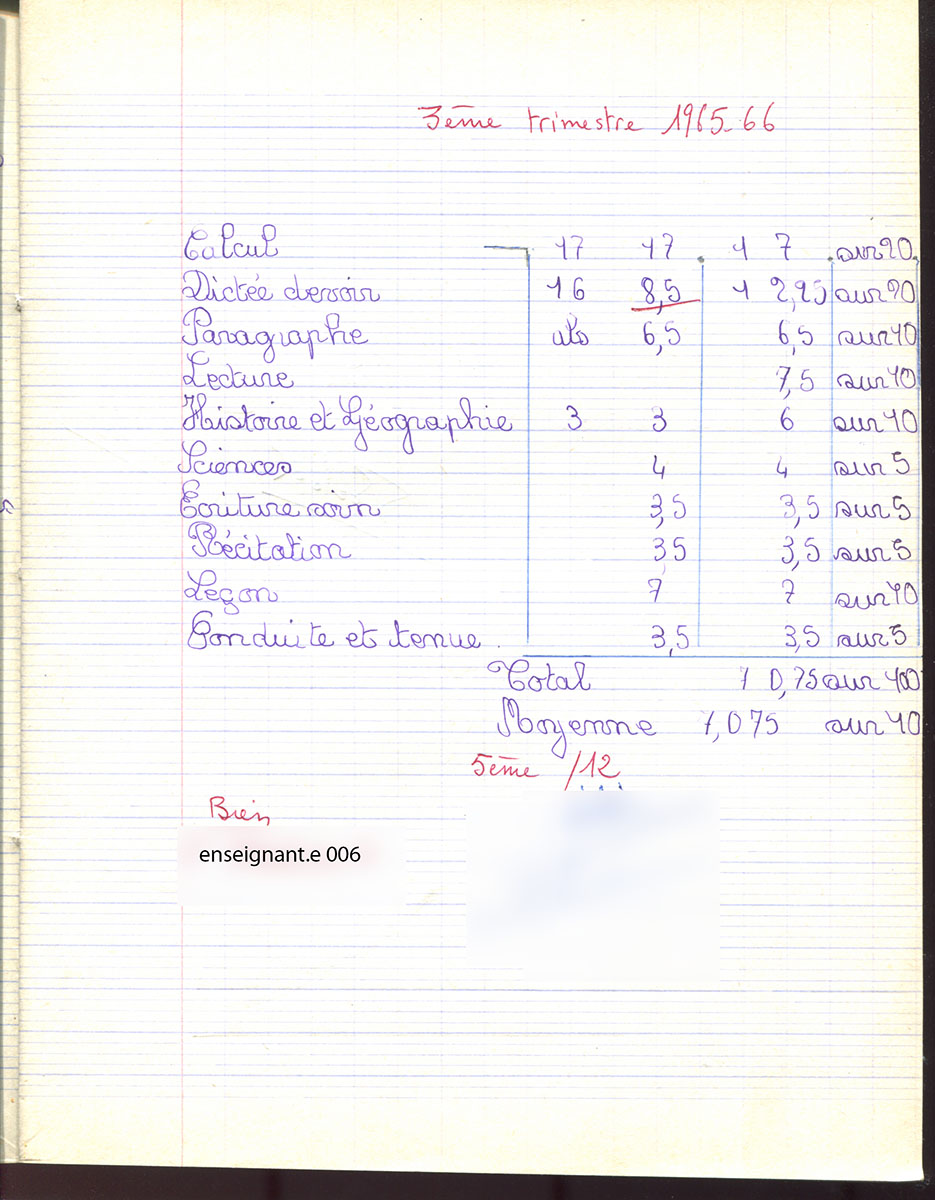 3ème trimestre 1965-66
Calcul 17 17 17 sur 20
Dictée devoir 16 8,5 12,25 sur 20
Paragraphe abs 6,5 6,5 sur 10
Lecture 7,5 sur 10
Histoire et Géographie 3 3 6 sur 10
Sciences 4 4 sur 5
Ecriture soin 3,5 3,5 sur 5
Récitation 35 3,5 sur 5
Leçon 7 7 sur 10
Conduite et tenue. 3,5 3,5 sur 5
Total 70,75 sur 100
Moyenne 7,075 sur 10
5ème /12
Bien
enseignant.e 006